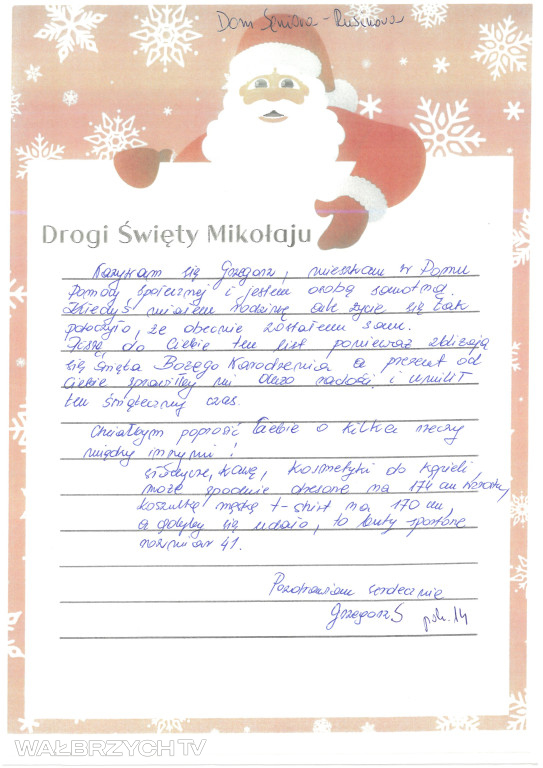 Dom Seniora - Rusinowa
Drogi Święty Mikołaju
Nazywam się Grzegorz, mieszkam w Domu
Pomocy Społecznej i jestem osobą samotną.
Kiedyś miałem rodzinę ale życie się tak
potoczyło, że obecnie zostałem sam.
Piszę do Ciebie ten list ponieważ zbliżają
się święta Bożego Narodzenia a prezent od
Ciebie sprawiłby mi dużo radości i umilił
ten świąteczny czas.
Chciałbym poprosić Ciebie o kilka rzeczy
między innymi!
słodycze, kawę, kosmetyki do kąpieli,
może spodnie dresowe na 174 cm wzrostu,
koszulkę męską t-shirt na 170 cm,
a gdyby się udało, to buty sportowe
rozmiar 41.
Pozdrawiam serdecznie
Grzegorz S pok. 14
WAŁBRZYCH TV